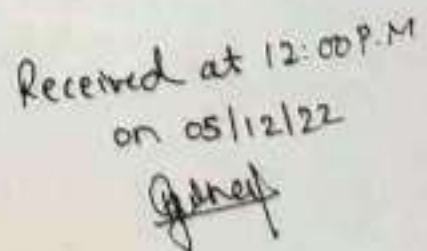 Received at 12:00 P.M
on 05/12/22